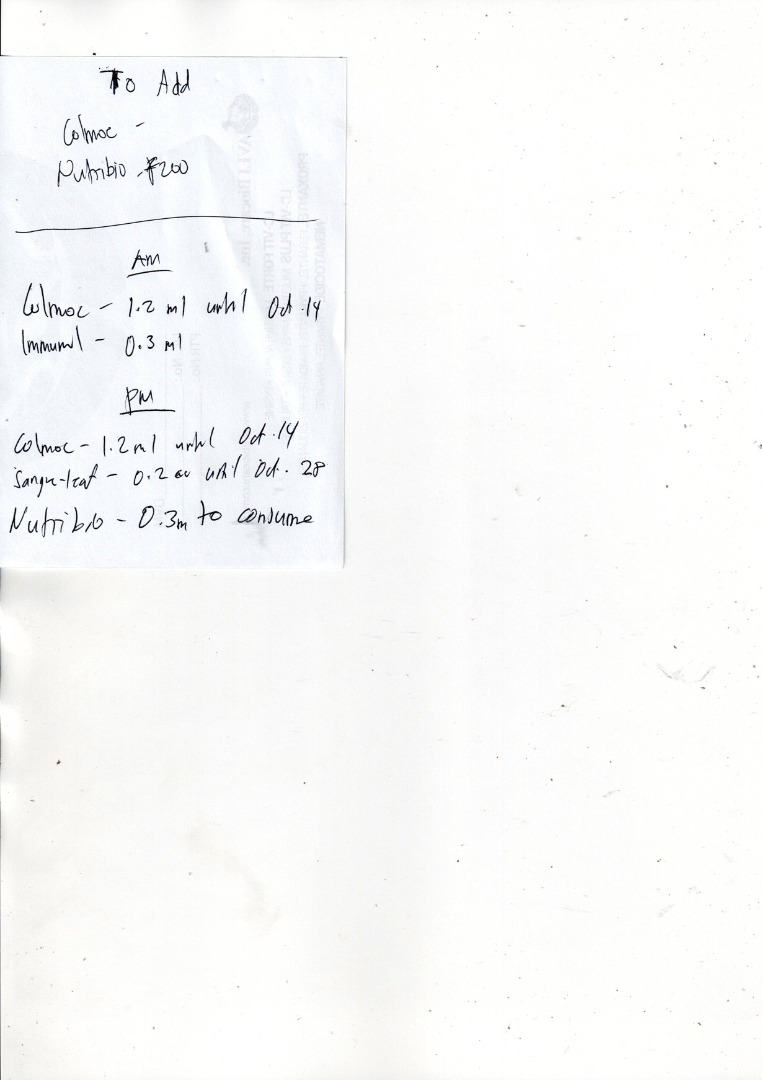 To Add
Colmoc -
Nutribio - ₱200
AM
Colmoc - 1.2 ml until Oct. 14
Immunol - 0.3 ml
PM
Colmoc - 1.2 ml until Oct. 14
- 0.2 until Oct. 28
Nutribio - 0.3m to consume